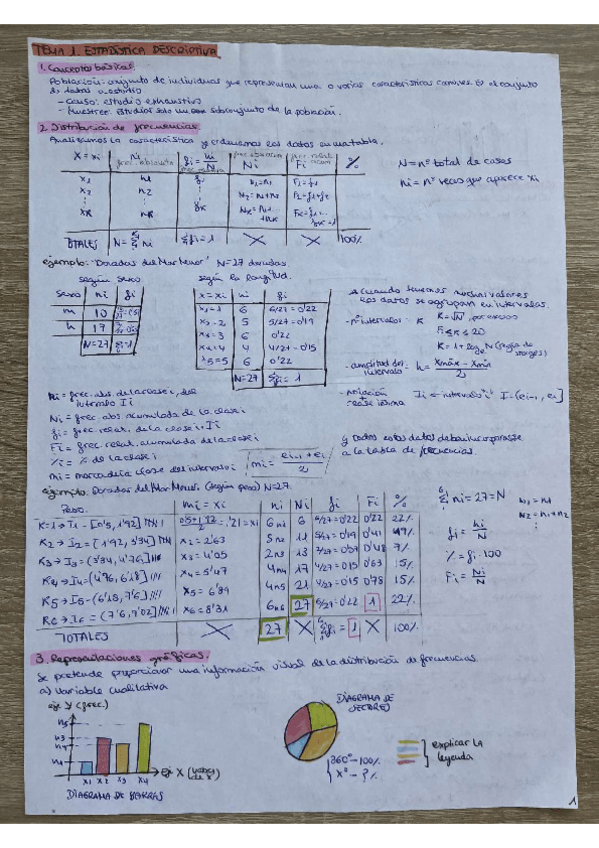 TEMA 1. ESTADÍSTICA DESCRIPTIVA
1. Conceptos básicos
Población: conjunto de individuos que representan una o varias características comunes. Es el conjunto
de datos
- Censo: estudio exhaustivo
- Muestreo: Estudiar solo un subconjunto de la población.
2. Distribución de frecuencias
Analizamos la característica y ordenamos los datos en una tabla.
X = xi | ni frec. absoluta | fi = ni/N | Ni | Fi | %
x1 | n1 | f1 | N1 = n1 | F1 = f1
x2 | n2 | N2 = n1+n2 | F2 = f1+f2
xk | nk | fk
TOTALES | N = Σ ni | Σ fi = 1 | X | X | 100%
N = nº total de casos
ni = nº veces que aparece xi
ejemplo: Doradas del Mar Menor N=27 doradas.
según sexo
Sexo | ni | fi
m | 10
h | 17
N=27
según la longitud.
X = xi | ni | fi
x1 = 1 | 6 | 6/27 = 0'22
x2 = 2 | 5 | 5/27 = 0'19
x3 = 3 | 6 | 0'22
x4 = 4 | 4 | 4/27 = 0'15
x5 = 5 | 6 | 0'22
N=27 | Σfi = 1
Cuando tenemos muchos valores
los datos se agrupan en intervalos.
- nº intervalos: K K = √N
5 ≤ K ≤ 20
(regla de
- amplitud del intervalo: h = xmáx - xmín
- notación clase iésima Ii = intervalo i I = (ei-1, ei]
ni = frec. abs. de la clase i, del
intervalo Ii
Ni = frec. abs. acumulada de la clase i
fi = frec. relat. de la clase i: Ii
Fi = frec. relat. acumulada de la clase i
% i = % de la clase i
mi = marca de la clase del intervalo i mi = ei-1 + ei / 2
y todos estos datos deben incorporarse
a la tabla de frecuencias.
ejemplo: Doradas del Mar Menor. (según peso) N=27.
Peso | mi = xi | ni | Ni | fi | Fi | %
K=1 → I1 - [0'5, 1'92] | 0'5+1'92/2 = 1'21 = x1 | 6 n1 | 6 | 6/27=0'22 | 0'22 | 22%
K2 → I2 = (1'92, 3'34] | x2 = 2'63 | 5 n2 | 11 | 5/27=0'19 | 0'41 | 19%
K3 → I3 = (3'34, 4'76] | x3 = 4'05 | 2 n3 | 13 | 2/27=0'07 | 0'48 | 7%
K4 → I4 = (4'76, 6'18] | x4 = 5'47 | 4 n4 | 17 | 4/27=0'15 | 0'63 | 15%
K5 → I5 - (6'18, 7'6] | x5 = 6'89 | 4 n5 | 21 | 4/27=0'15 | 0'78 | 15%
K6 → I6 = (7'6, 9'02] | x6 = 8'31 | 6 n6 | 27 | 6/27=0'22 | 1 | 22%
TOTALES | X | 27 | X | Σ fi = 1 | X | 100%
Σ ni = 27 = N
N1 = n1
N2 = n1 + n2
fi = ni/N
% = fi · 100
Fi = Ni/N
3. Representaciones gráficas.
Se pretende proporcionar una información visual de la distribución de frecuencias.
a) variable cualitativa
eje Y (frec.)
n1
x1 x2 x3 x4
eje X (valores de X)
DIAGRAMA DE BARRAS
DIAGRAMA DE SECTORES
360º - 100%
xº - ?%
explicar la
leyenda
1